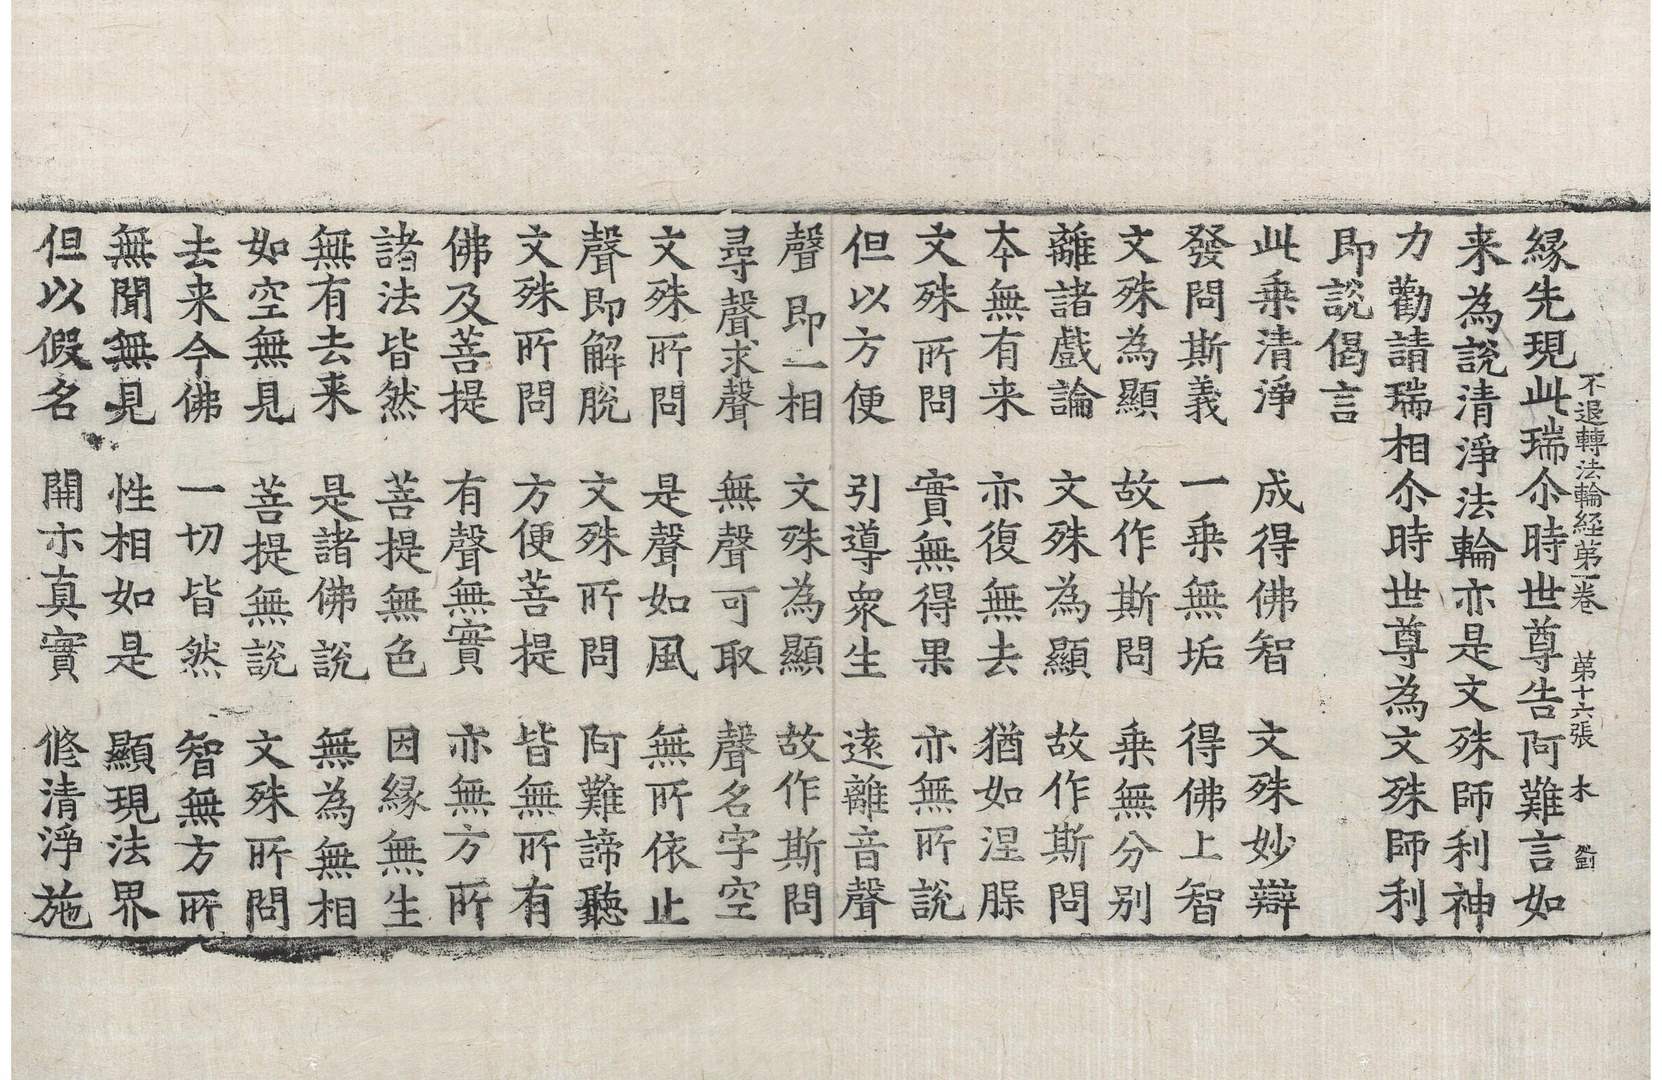 不退轉法輪経苐一卷 苐十六張 木 劉
縁先現此瑞尒時世尊告阿難言如
来為說清淨法輪亦是文殊師利神
力勸請瑞相尒時世尊為文殊師利
即說偈言
此乗清淨 成得佛智 文殊妙辯
發問斯義 一乗無垢 得佛上智
文殊為顯 故作斯問 乗無分別
離諸戲論 文殊為顯 故作斯問
本無有来 亦復無去 猶如涅槃
文殊所問 實無得果 亦無所說
但以方便 引導衆生 遠離音聲
聲即一相 文殊為顯 故作斯問
尋聲求聲 無聲可取 聲名字空
文殊所問 是聲如風 無所依止
聲即解脫 文殊所問 阿難諦聽
文殊所問 方便菩提 皆無所有
佛及菩提 有聲無實 亦無方所
諸法皆然 菩提無色 因縁無生
無有去来 是諸佛說 無為無相
如空無見 菩提無說 文殊所問
去来今佛 一切皆然 智無方所
無聞無見 性相如是 顯現法界
但以假名 開示真實 修清淨施